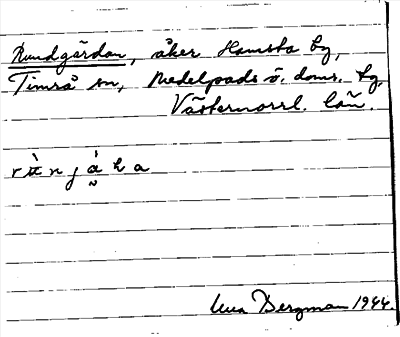 Rundgårdan, åker Hamsta by,
Timrå sn, Medelpads ö. doms. tg,
Västernorrl. län.
Una Bergman 1944.